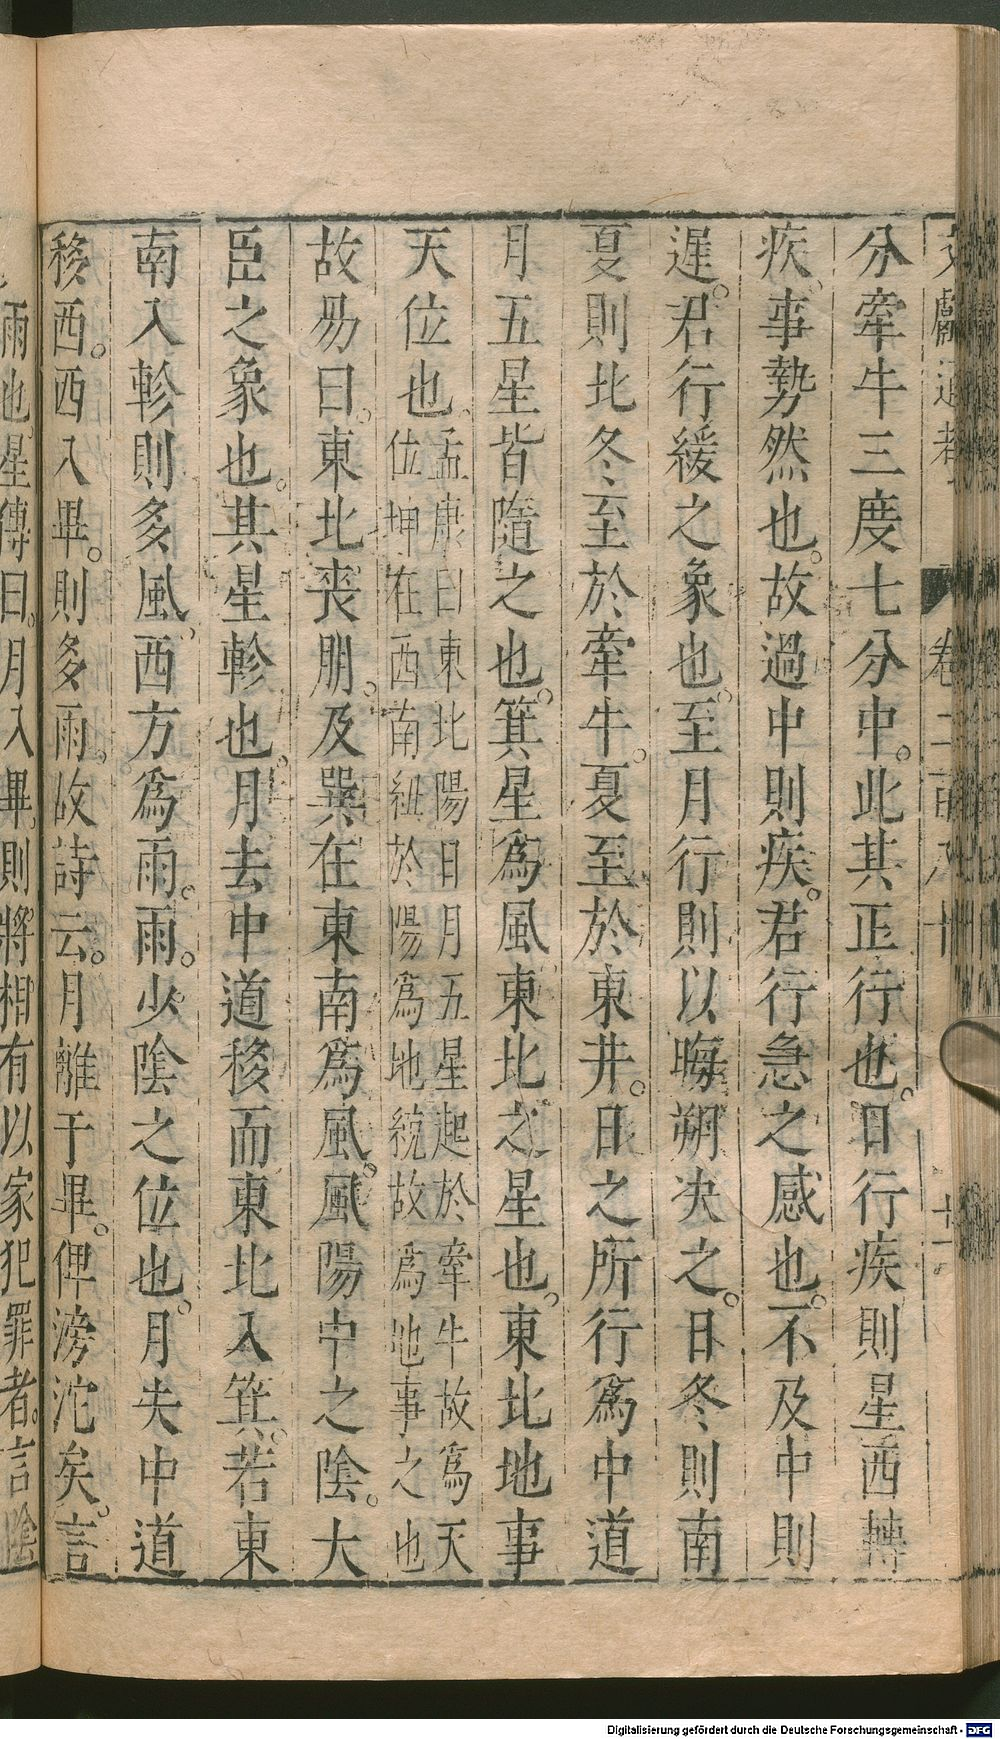 分牽牛三度七分中。此其正行也。日行疾則星西轉
疾。事勢然也。故過中則疾。君行急之感也。不及中則
遲。君行緩之象也。至月行則以晦朔决之。日冬則南
夏則北冬至於牽牛。夏至於東井。日之所行爲中道
月五星皆隨之也。箕星爲風東北之星也。東北地事
天位也。孟康曰東北陽日月五星起於牽牛故爲天
位坤在西南紐於陽爲地統故爲地事之也
故易曰。東北喪朋。及巽在東南爲風。風陽中之陰。大
臣之象也。其星軫也。月去中道移而東北入箕。若東
南入軫則多風。西方爲雨。雨。少陰之位也。月失中道
移西。西入畢。則多雨。故詩云。月離于畢。俾滂沱矣。言
雨也。星傳曰。月入畢。則將相有以家犯罪者。言陰
Digitalisierung gefördert durch die Deutsche Forschungsgemeinschaft - DFG